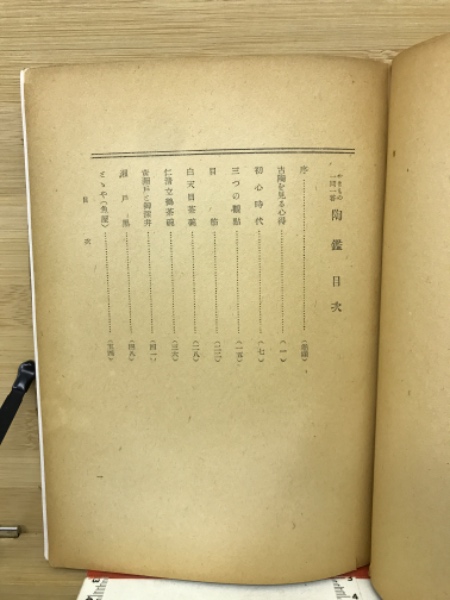 やきもの
一問一答
陶鑑目次
序……(巻頭)
古陶を見る心得……(一)
初心時代……(七)
三つの難點……(一五)
目筋……(二三)
白天目茶碗……(二八)
仁清立鶴茶碗……(三六)
黄瀬戸と御深井……(四一)
瀬戸黒……(四八)
とゝや(魚屋)……(五四)
目次